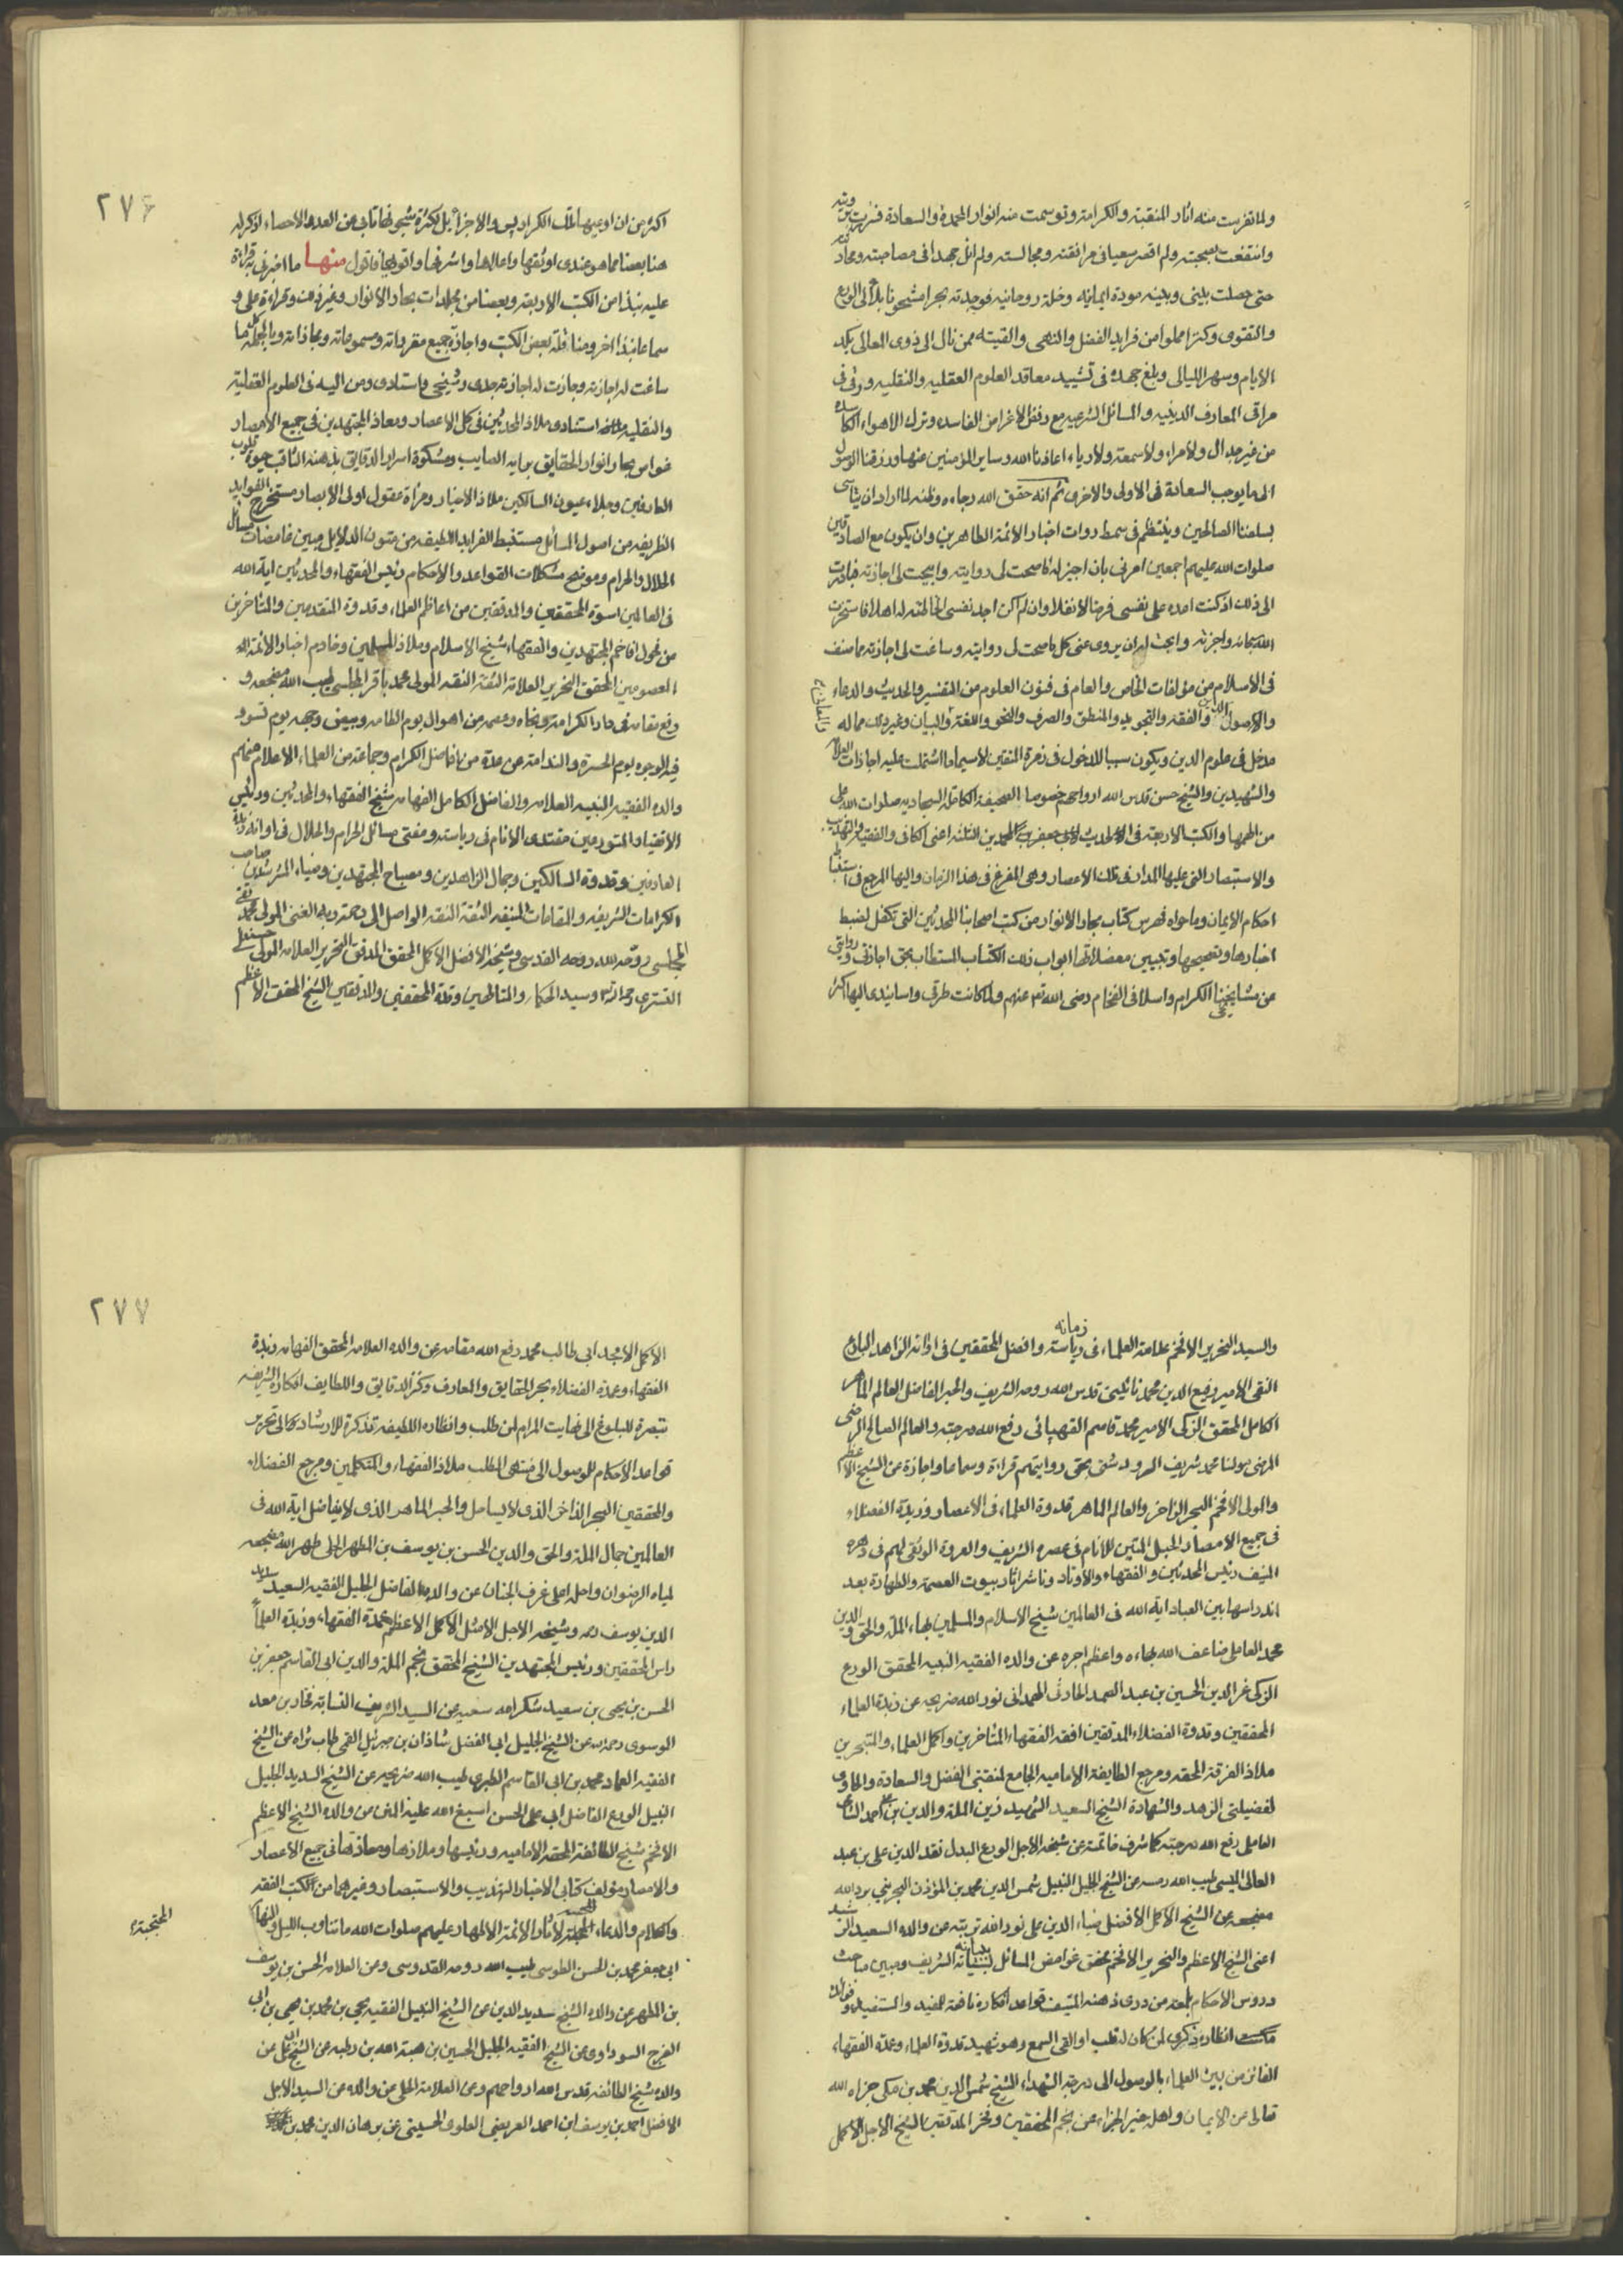 ولما تفرست منه اثار المنقبة والكرامة وتوسمت منه انوار المحمدة والسعادة
وانتفعت بصحبته ولم اقصر سعيا في مرافقته ومجالسته ولم ال جهدا في مصاحبته
حتى حصلت بيني وبينه مودة ايمانية وخلة روحانية فوجدته بحرا مشحونا
والتقوى وكنزا مملوا من فرايد الفضل والنهى والفيته ممن نال الى ذوى المعالى بكد
الايام وسهر الليالى وبلغ جهده في تشييد معاقد العلوم العقلية والنقلية ورقى في
مراقى المعارف الدينية والمسائل الشرعية مع رفض الاغراض الفاسدة وترك الاهواء الكاسدة
من غير جدال ولا مراء ولا سمعة ولا رياء اعاذنا الله وساير المؤمنين عنها ورزقنا الوصول
الى ما يوجب السعادة في الاولى والاخرى ثم انه حقق الله رجاءه وظنه لما اراد ان يتاسى
بسلفنا الصالحين وينتظم في سمط روات اخبار الائمة الطاهرين وان يكون مع الصادقين
صلوات الله عليهم اجمعين امرني بان اجيز له ما صحت لى روايته وابيحت لى اجازته فبادرت
الى ذلك اذ كنت اعده على نفسى فرضا لا نفلا وان لم اكن اجد نفسى لمخالفته له اهلا فاستخرت
الله سبحانه واجزته وابحت له ان يروى عنى كل ما صحت لى روايته وساغت لى اجازته مما صنف
في الاسلام من مؤلفات الخاص والعام في فنون العلوم من التفسير والحديث والدعاء
والاصولين والفقه والتجويد والمنطق والصرف والنحو واللغة والبيان وغير ذلك مما له
والمعانى
مدخل في علوم الدين ويكون سببا للدخول في زمرة المتقين لاسيما ما اشتملت عليه اجازات العلامة
والشهيدين والشيخ حسن قدس الله ارواحهم خصوصا الصحيفة الكاملة السجادية صلوات الله على
من الهمها والكتب الاربعة في الاحاديث لابى جعفرين المحمدين الثلثة اعنى الكافى والفقيه والتهذيب
والاستبصار التى عليها المدار في تلك الاعصار وهى المفزع في هذا الزمان واليها المرجع في استنباط
احكام الايمان وما حواه فهرس كتاب بحار الانوار من كتب اصحابنا المحدثين التى تكفل لضبط
اخبارها وتصحيحها وتبيين معضلاتها ابواب ذلك الكتاب المستطاب بحق اجازتى وروايتى
عن مشايخنا الكرام واسلافى الفخام رضى الله عنهم ولما كانت طرقى واسانيدى اليها اكثر
٢٧٦
اكثر من ان اوعيها تلك الكراريس والاجزاء بل لكثرة شجونها تابى عن العد والاحصاء اذكر له
هنا بعضا مما هو عندى اوثقها واعلاها واشرفها واقولها فاقول منها ما اخبرنى به قراءة
عليه نبذا من الكتب الاربعة وبعضا من مجلدات بحار الانوار وغير ذلك وقراءة على و
سماعا نبذا اخر ومناولة بعض الكتب واجازة جميع مقرواته ومسموعاته ومجازاته وبالجملة كل ما
ساغت له اجازته وجازت له اجازته جدى وشيخى واستادى ومن اليه في العلوم العقلية
والنقلية استنادى ملاذ المحدثين في كل الاعصار ومعاذ المجتهدين في جميع الامصار
غواص بحار انوار الحقايق برايه الصايب ومشكوة اسرار الدقايق بذهنه الثاقب حيوة قلوب
العارفين وجلاء عيون السالكين ملاذ الاخيار ومرآة عقول اولى الابصار مستخرج الفوايد
الطريفة من اصول المسائل مستنبط الفرايد اللطيفة من متون الدلايل مبين غامضات مسائل
الحلال والحرام وموضح مشكلات القواعد والاحكام رئيس الفقهاء والمحدثين اية الله
في العالمين اسوة المحققين والمدققين من اعاظم العلماء وقدوة المتقدمين والمتاخرين
من فحول افاخم المجتهدين والفقهاء شيخ الاسلام وملاذ المسلمين وخادم اخبار الائمة
المعصومين المحقق النحرير العلامة الثقة الثقه المولى محمد باقر المجلسى طيب الله مضجعه و
رفع مقامه في دار الكرامة ونجاه وعصمه من اهوال يوم الطامه وبيض وجهه يوم تسود
فيه الوجوه يوم الحسرة والندامة عن عدة من افاضل الكرام وجماعة من العلماء الاعلام منهم
والده الفقيه النبيه العلامه والفاضل الكامل الفهامه شيخ الفقهاء والمحدثين ورئيس
الاتقياء والمتورعين مقتدى الانام في رياسته ومفتى مسائل الحرام والحلال في اوانه زبدة
العارفين وقدوة السالكين وجمال الزاهدين ومصباح المجتهدين وضياء المسترشدين صاحب
الكرامات الشريفة والمقامات المنيفه الثقة الثقه الواصل الى رحمة ربه الغنى المولى محمد تقى
المجلسى روح الله روحه القدسى وشيخه الافضل الاكمل المحقق المدقق النحرير العلامه المولى حسنعلى
التسترى وسيد الحكماء والمتالهين وقدوة المحققين والمدققين الشيخ المحقق الاعظم
والسيد النحرير الافخم علامة العلماء في رياسته وافضل المحققين في اوانه الزاهد البارع
زمانه
التقى الامير رفيع الدين محمد نائينى قدس الله روحه الشريف والحبر الفاضل العالم الماهر
الكامل المحقق الزكى الامير محمد قاسم القهپائى رفع الله درجته والعالم الصالح الرضى
المرضى مولنا محمد شريف الرويدشتى بحق روايتهم قراءة وسماعا واجازة عن الشيخ الاعظم
والمولى الافخم البحر الزاخر والعالم الماهر قدوة العلماء في الاعصار وزبدة الفضلاء
في جميع الامصار الحبل المتين للانام في عصره الشريف والعروة الوثقى لهم في دهره
المنيف رئيس المحدثين والفقهاء والاوتاد وناشر اثار بيوت العصمة والطهارة بعد
اندراسها بين العباد اية الله في العالمين شيخ الاسلام والمسلمين بهاء الملة والحق والدين
محمد العاملى ضاعف الله بهاءه واعظم اجره عن والده الفقيه النبيه المحقق الورع
الزكى عز الدين الحسين بن عبد الصمد الحارثى الهمدانى نور الله ضريحه عن زبدة العلماء
المحققين وقدوة الفضلاء المدققين افقه الفقهاء المتاخرين واكمل العلماء والمتبحرين
ملاذ الفرقة المحقه ومرجع الطايفة الامامية الجامع لمنقبتى الفضل والسعادة والحاوى
لفضيلتى الزهد والشهادة الشيخ السعيد الشهيد زين الملة والدين بن على احمد الشامى
العاملى رفع الله درجته كما شرف خاتمته عن شيخه الاجل الورع البدل نقد الدين على بن عبد
العالى الميسى طيب الله رمسه عن الشيخ الجليل النبيل شمس الدين محمد بن المؤذن الجزينى برد الله
مضجعه عن الشيخ الاكمل الافضل ضياء الدين على نور الله تربته عن والده السعيد الرشيد
اعنى الشيخ الاعظم والنحرير الافخم محقق غوامض المسائل ببيانه الشريف ومبين مباحث
ودروس الاحكام بلمعة من درى ذهنه المنيف قواعد افكاره نافعة للمفيد والمستفيد وفوائد
انظاره ذكرى لمن كان له قلب او القى السمع وهو شهيد قدوة العلماء وعلامة الفقهاء
الفائز من بين العلماء بالوصول الى درجة الشهداء الشيخ شمس الدين محمد بن مكى جزاه الله
تعالى عن الايمان واهله خير الجزاء عن فخر المحققين وفخر المدققين الشيخ الاجل الاكمل
٢٧٧
الاكمل الامجد ابى طالب محمد رفع الله مقامه عن والده العلامه المحقق الفهامه زبدة
الفقهاء وعمدة الفضلاء بحر الحقايق والمعارف وكنز الدقايق واللطايف افكاره الشريفه
تبصرة للبلوغ الى نهايت المرام لمن طلب وانظاره اللطيفه تذكرة للارشاد الى تحرير
قواعد الاحكام للوصول الى منتهى المطلب ملاذ الفقهاء والمتكلمين ومرجع الفضلاء
والمحققين البحر الزاخر الذى لا يساحل والحبر الماهر الذى لا يفاضل اية الله في
العالمين جمال الملة والحق والدين الحسن بن يوسف بن المطهر الحلى طهر الله مضجعه
لمياه الرضوان واحله اعلى غرف الجنان عن والده الفاضل الجليل الفقيه السعيد سديد
الدين يوسف ره وشيخه الاجل الامثل الاكمل الاعظم عمدة الفقهاء وزبدة العلماء
راس المحققين ورئيس المجتهدين الشيخ المحقق نجم الملة والدين ابى القاسم جعفر بن
الحسن بن يحيى بن سعيد شكر الله سعيه عن السيد الشريف النسابة فخار بن معد
الموسوى رحمه الله عن الشيخ الجليل ابى الفضل شاذان بن جبرئيل القمى طاب ثراه عن الشيخ
الفقيه العماد محمد بن ابى القاسم الطبرى طيب الله ضريحه عن الشيخ السديد الجليل
النبيل الورع الفاضل ابى على الحسن اسبغ الله عليه المنن عن والده الشيخ الاعظم
الافخم شيخ الطائفة المحقة الامامية ورئيسها وملاذها ومعاذها في جميع الاعصار
والامصار مؤلف كتابى الاخبار التهذيب والاستبصار وغيرهما من الكتب الفقه
والكلام والدعاء الائمة الاطهار عليهم صلوات الله ما تناوب الليل والنهار
ابى جعفر محمد بن الحسن الطوسى طيب الله روحه القدوسى وعن العلامه الحسن بن يوسف
بن المطهر عن والده الشيخ سديد الدين عن الشيخ النبيل الفقيه يحيى بن محمد بن يحيى بن ابى
الفرج السوراوى عن الشيخ الفقيه الجليل الحسين بن هبة الله بن رطبه عن الشيخ ابى على عن
والده شيخ الطائفه قدس الله ارواحهم وعن العلامة الحلى عن والده عن السيد الاجل
الافضل احمد بن يوسف ابن احمد العريضى العلوى الحسينى عن برهان الدين محمد بن محمد